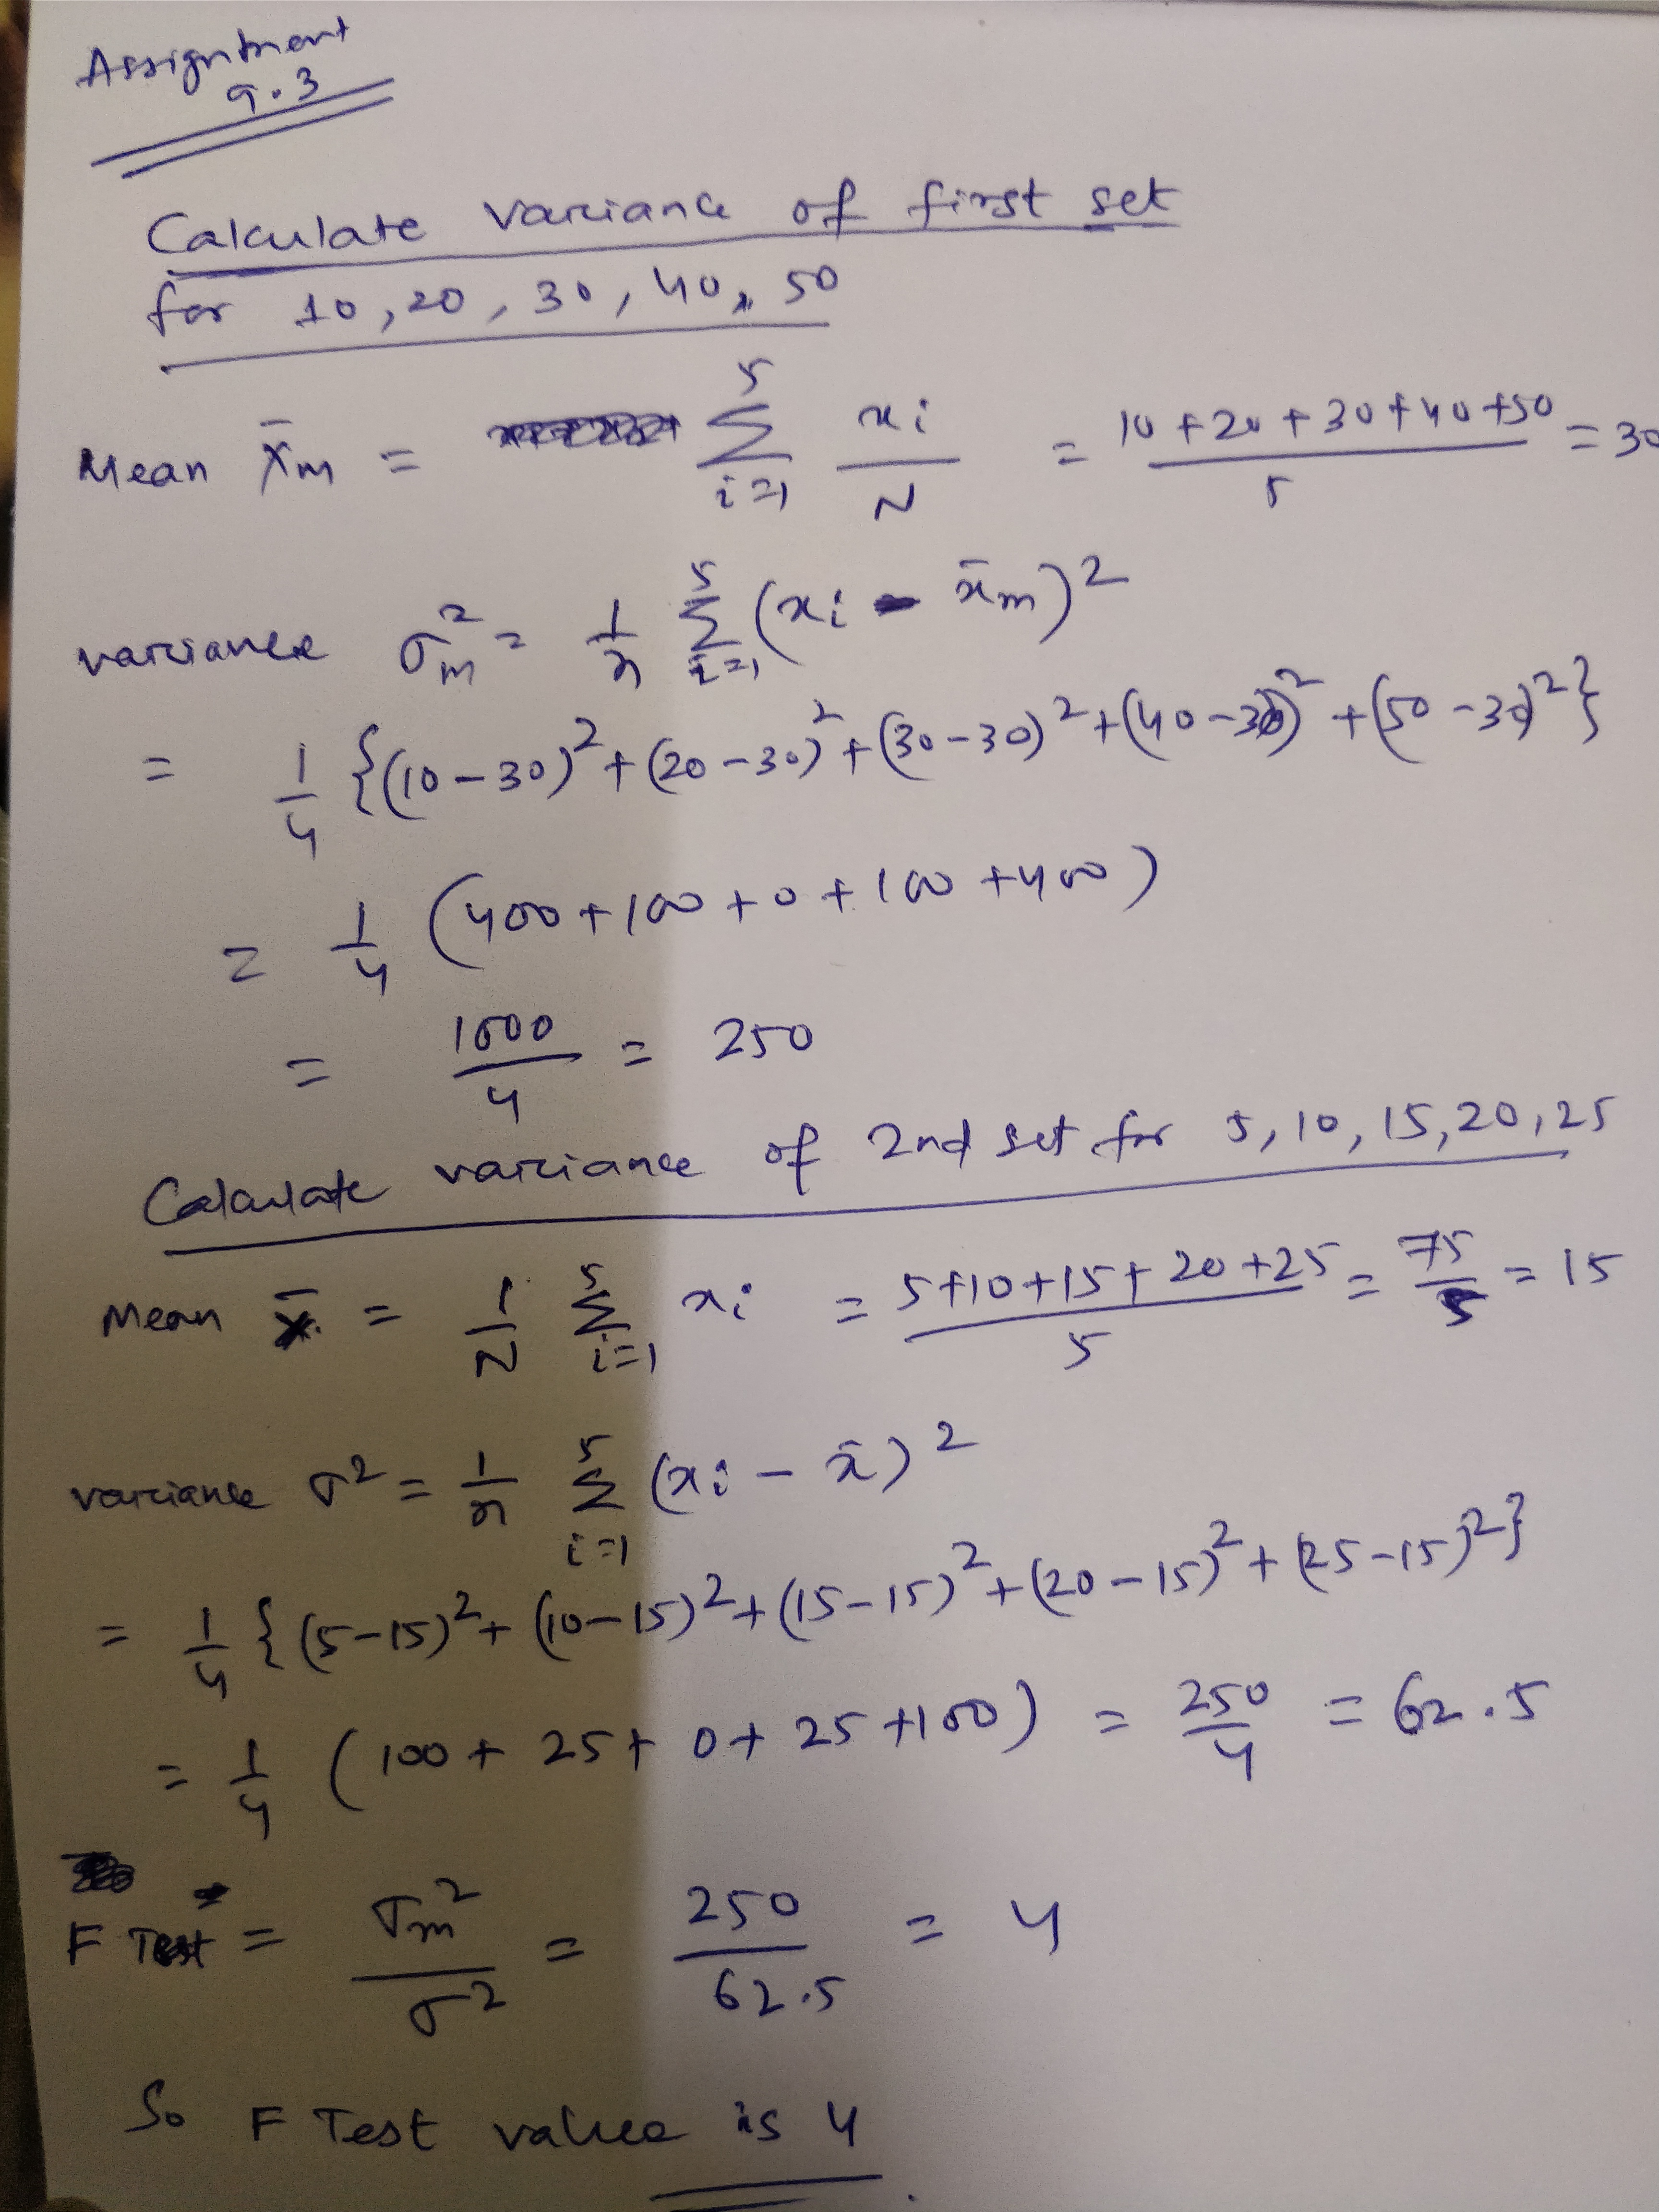 Assignment
9.3
Calculate variance of first set
for 10, 20, 30, 40, 50
Mean x̄m = 5 Σ i=1 xi/N = (10+20+30+40+50)/5 = 30
variance σm² = 1/n 5 Σ i=1 (xi - x̄m)²
= 1/4 {(10-30)²+(20-30)²+(30-30)²+(40-30)²+(50-30)²}
= 1/4 (400+100+0+100+400)
= 1000/4 = 250
Calculate variance of 2nd set for 5, 10, 15, 20, 25
Mean x̄ = 1/N 5 Σ i=1 xi = (5+10+15+20+25)/5 = 75/5 = 15
variance σ² = 1/n 5 Σ i=1 (xi - x̄)²
= 1/4 {(5-15)²+(10-15)²+(15-15)²+(20-15)²+(25-15)²}
= 1/4 (100+25+0+25+100) = 250/4 = 62.5
F Test = σm²/σ² = 250/62.5 = 4
So F Test value is 4